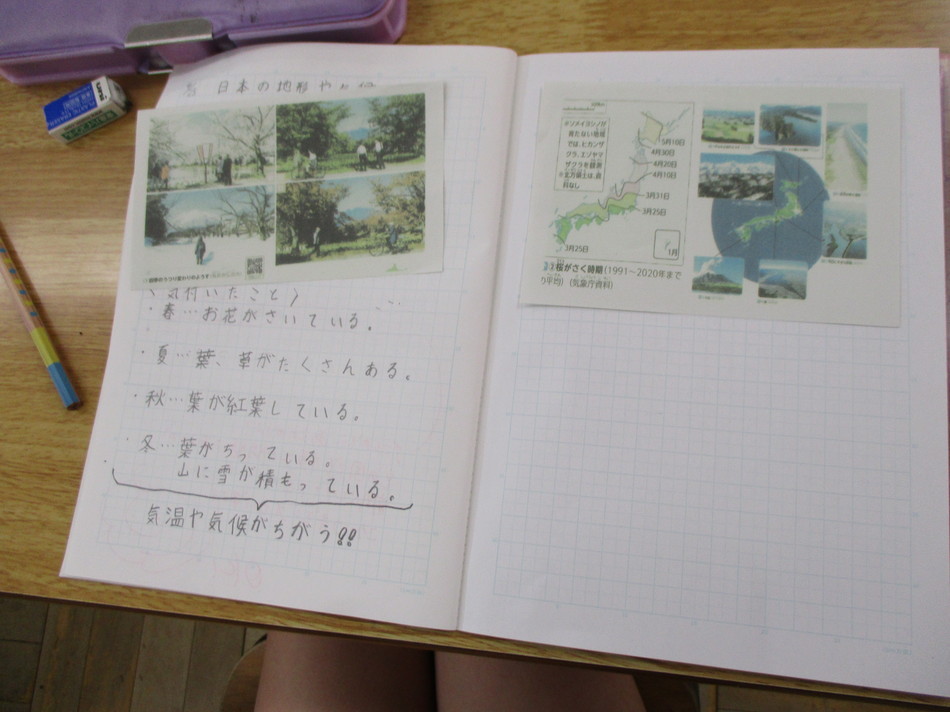 日本の地形や
気付いたこと〉
・春…お花がさいている。
・夏…葉、草がたくさんある。
・秋…葉が紅葉している。
・冬…葉がちっている。
山に雪が積もっている。
気温や気候がちがう!!
※ソメイヨシノが
育たない地域
では、ヒカンザ
クラ、エゾヤマ
ザクラを観測
※北方領土は、資
料なし
5月10日
4月30日
4月20日
4月10日
3月31日
3月25日
3月25日
1月
桜がさく時期(1991~2020年まで
の平均)(気象庁資料)
uni
PLASTIC ERASER